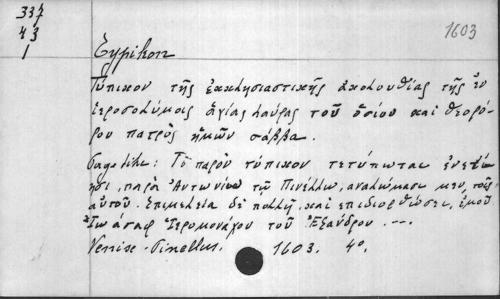 337
43
1
1603
Typikon
Τύπικον τῆς ἐκκλησιαστικῆς ἀκολουθίας τῆς ἐν
ἱεροσολύμοις ἁγίας λαύρας τοῦ ὁσίου καὶ θεοφό-
ρου πατρὸς ἡμῶν σάββα.
Page title: Τὸ παρὸν τύπικον τετύπωται ἐνετίῃ-
σι, παρὰ Ἀντωνίου τῷ Πινέλλῳ, ἀναλώμασι μεν τοῖς
αὐτοῦ. Ἐπιμελείᾳ δὲ πολλῇ, καὶ ἐπιδιορθώσει, ἐμοῦ
Ἰωάσαφ Ἱερομονάχου τοῦ Ἐξάνδρου. ---
Venise - Pinellus. 1603. 4°.